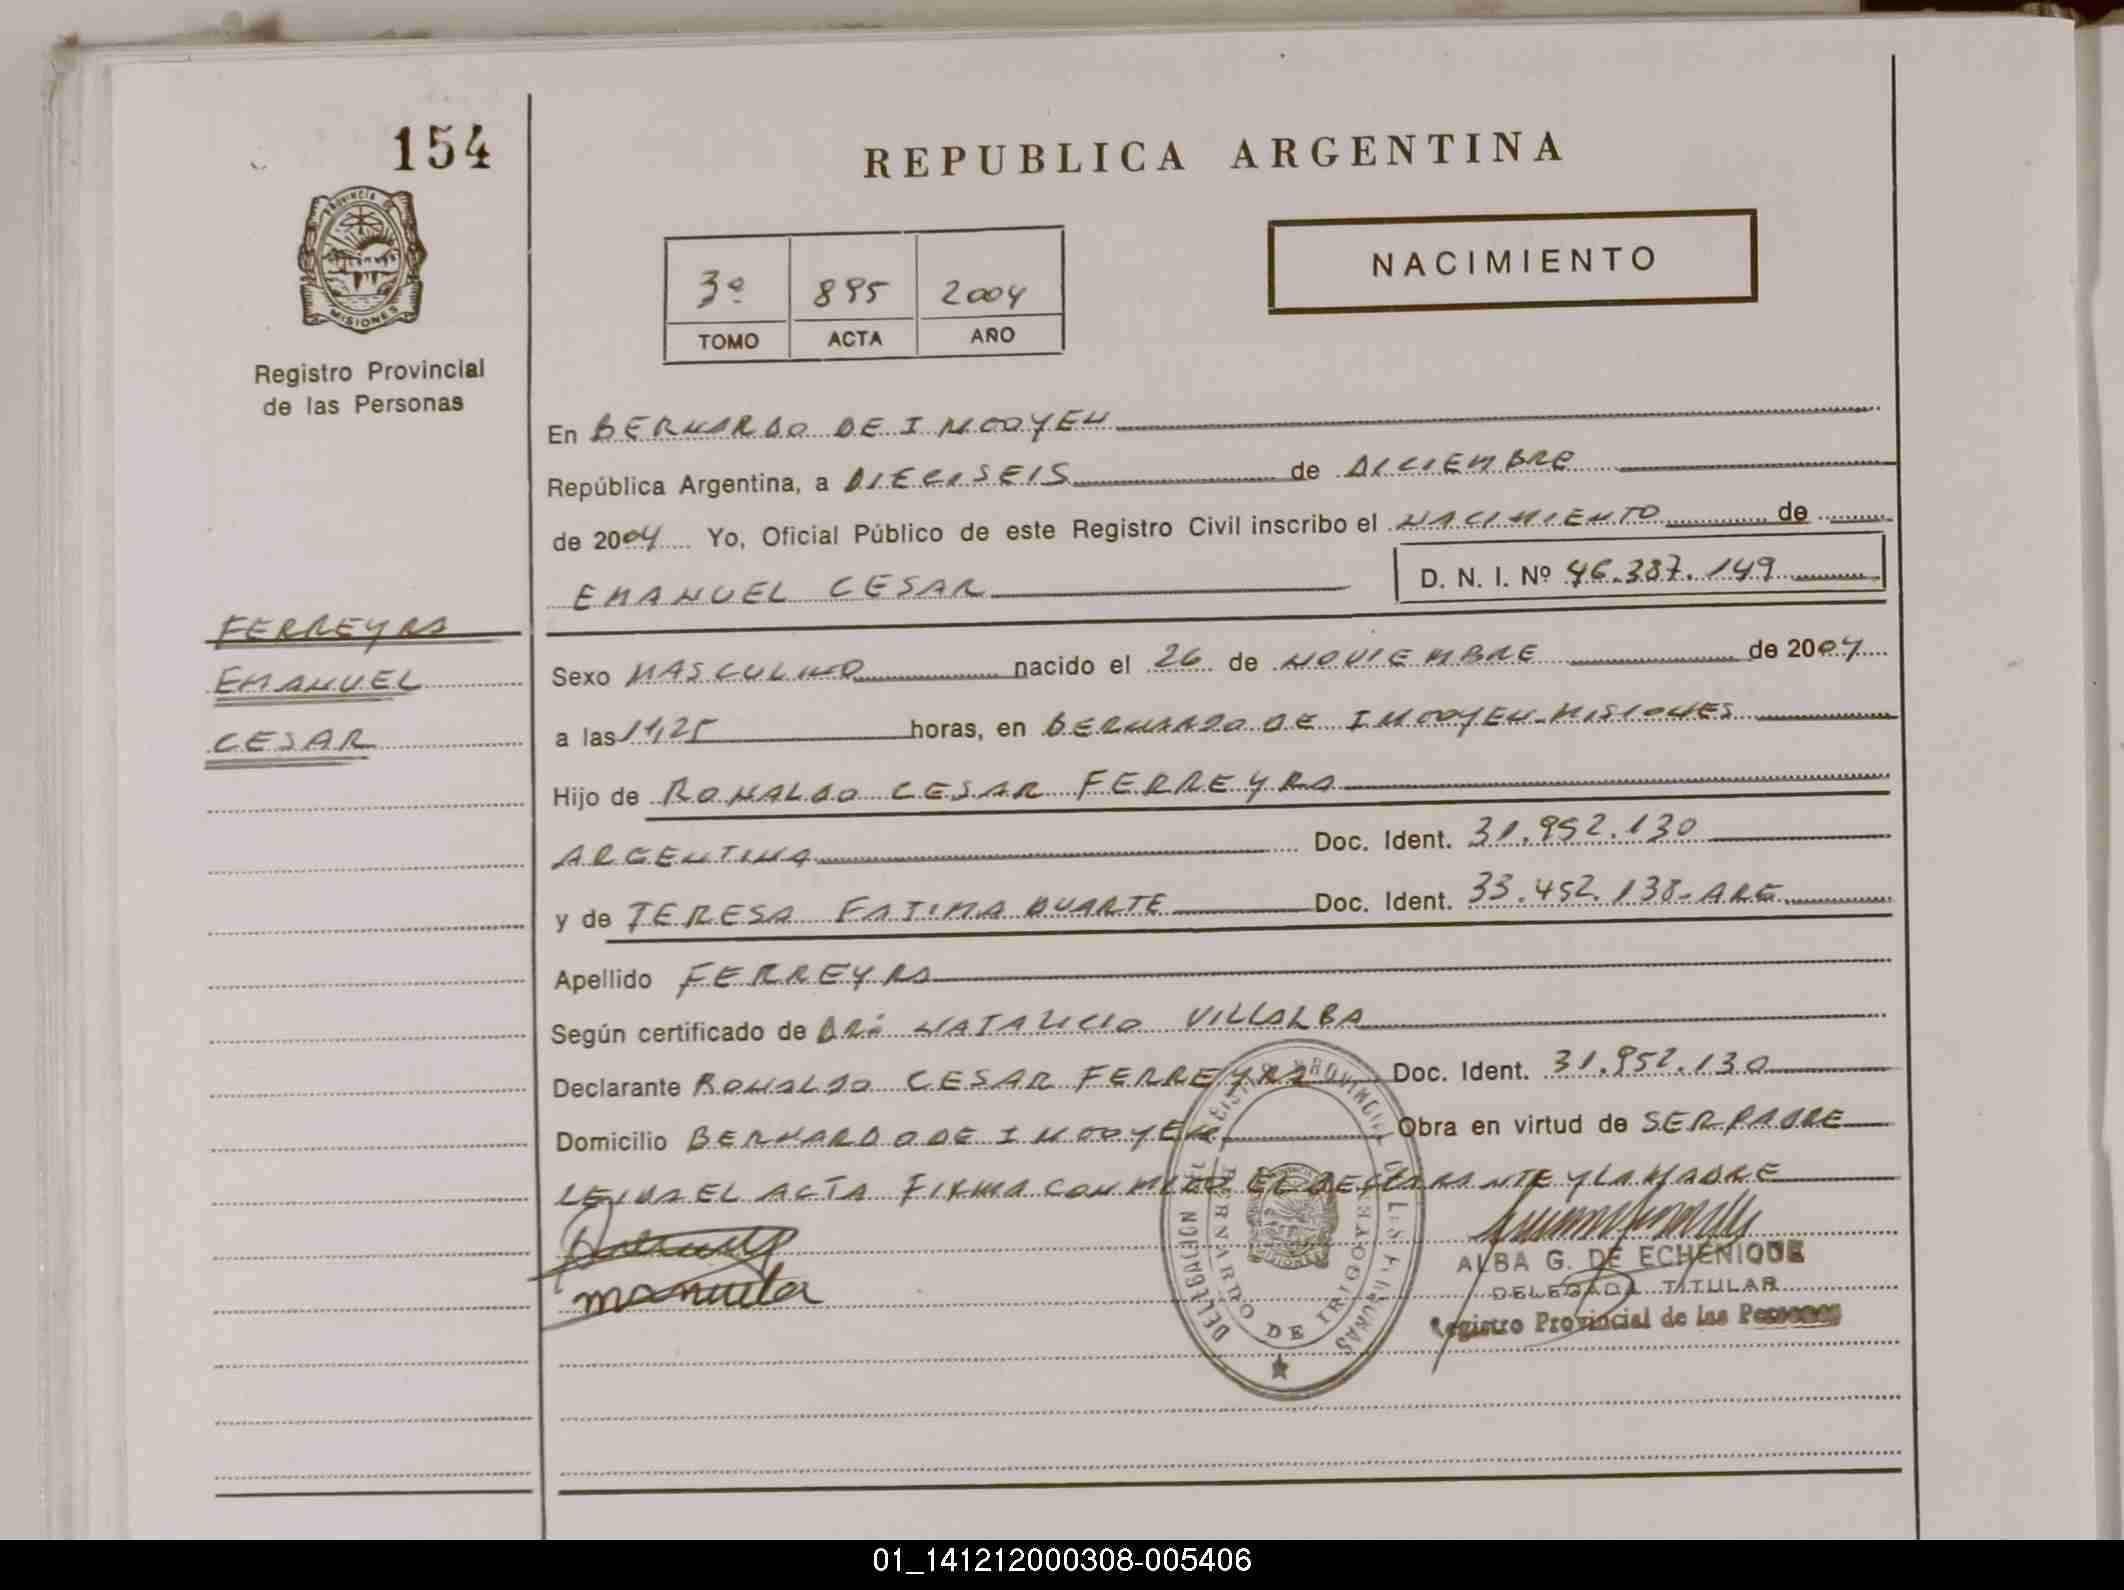 154
REPUBLICA ARGENTINA
PROVINCIA DE
MISIONES
NACIMIENTO
3º 895 2004
TOMO ACTA AÑO
Registro Provincial
de las Personas
En BERNARDO DE IRIGOYEN
República Argentina, a DIECISEIS de DICIEMBRE
de 2004 Yo, Oficial Público de este Registro Civil inscribo el NACIMIENTO de
EMANUEL CESAR D. N. I. Nº 46.387.149
FERREYRA
EMANUEL
CESAR
Sexo MASCULINO nacido el 26 de NOVIEMBRE de 2004
a las 11,25 horas, en BERNARDO DE IRIGOYEN-MISIONES
Hijo de RONALDO CESAR FERREYRA
ARGENTINA Doc. Ident. 31.952.130
y de TERESA FATIMA DUARTE Doc. Ident. 33.452.138-ARG
Apellido FERREYRA
Según certificado de DR: NATALICIO VILLALBA
Declarante RONALDO CESAR FERREYRA Doc. Ident. 31.952.130
Domicilio BERNARDO DE IRIGOYEN Obra en virtud de SER PADRE
LEIDA EL ACTA FIRMA CONMIGO EL DECLARANTE Y LA MADRE
DELEGACION DEL REGISTRO PROVINCIAL DE LAS PERSONAS
BERNARDO DE IRIGOYEN
ALBA G. DE ECHENIQUE
DELEGADA TITULAR
Registro Provincial de las Personas
01_141212000308-005406